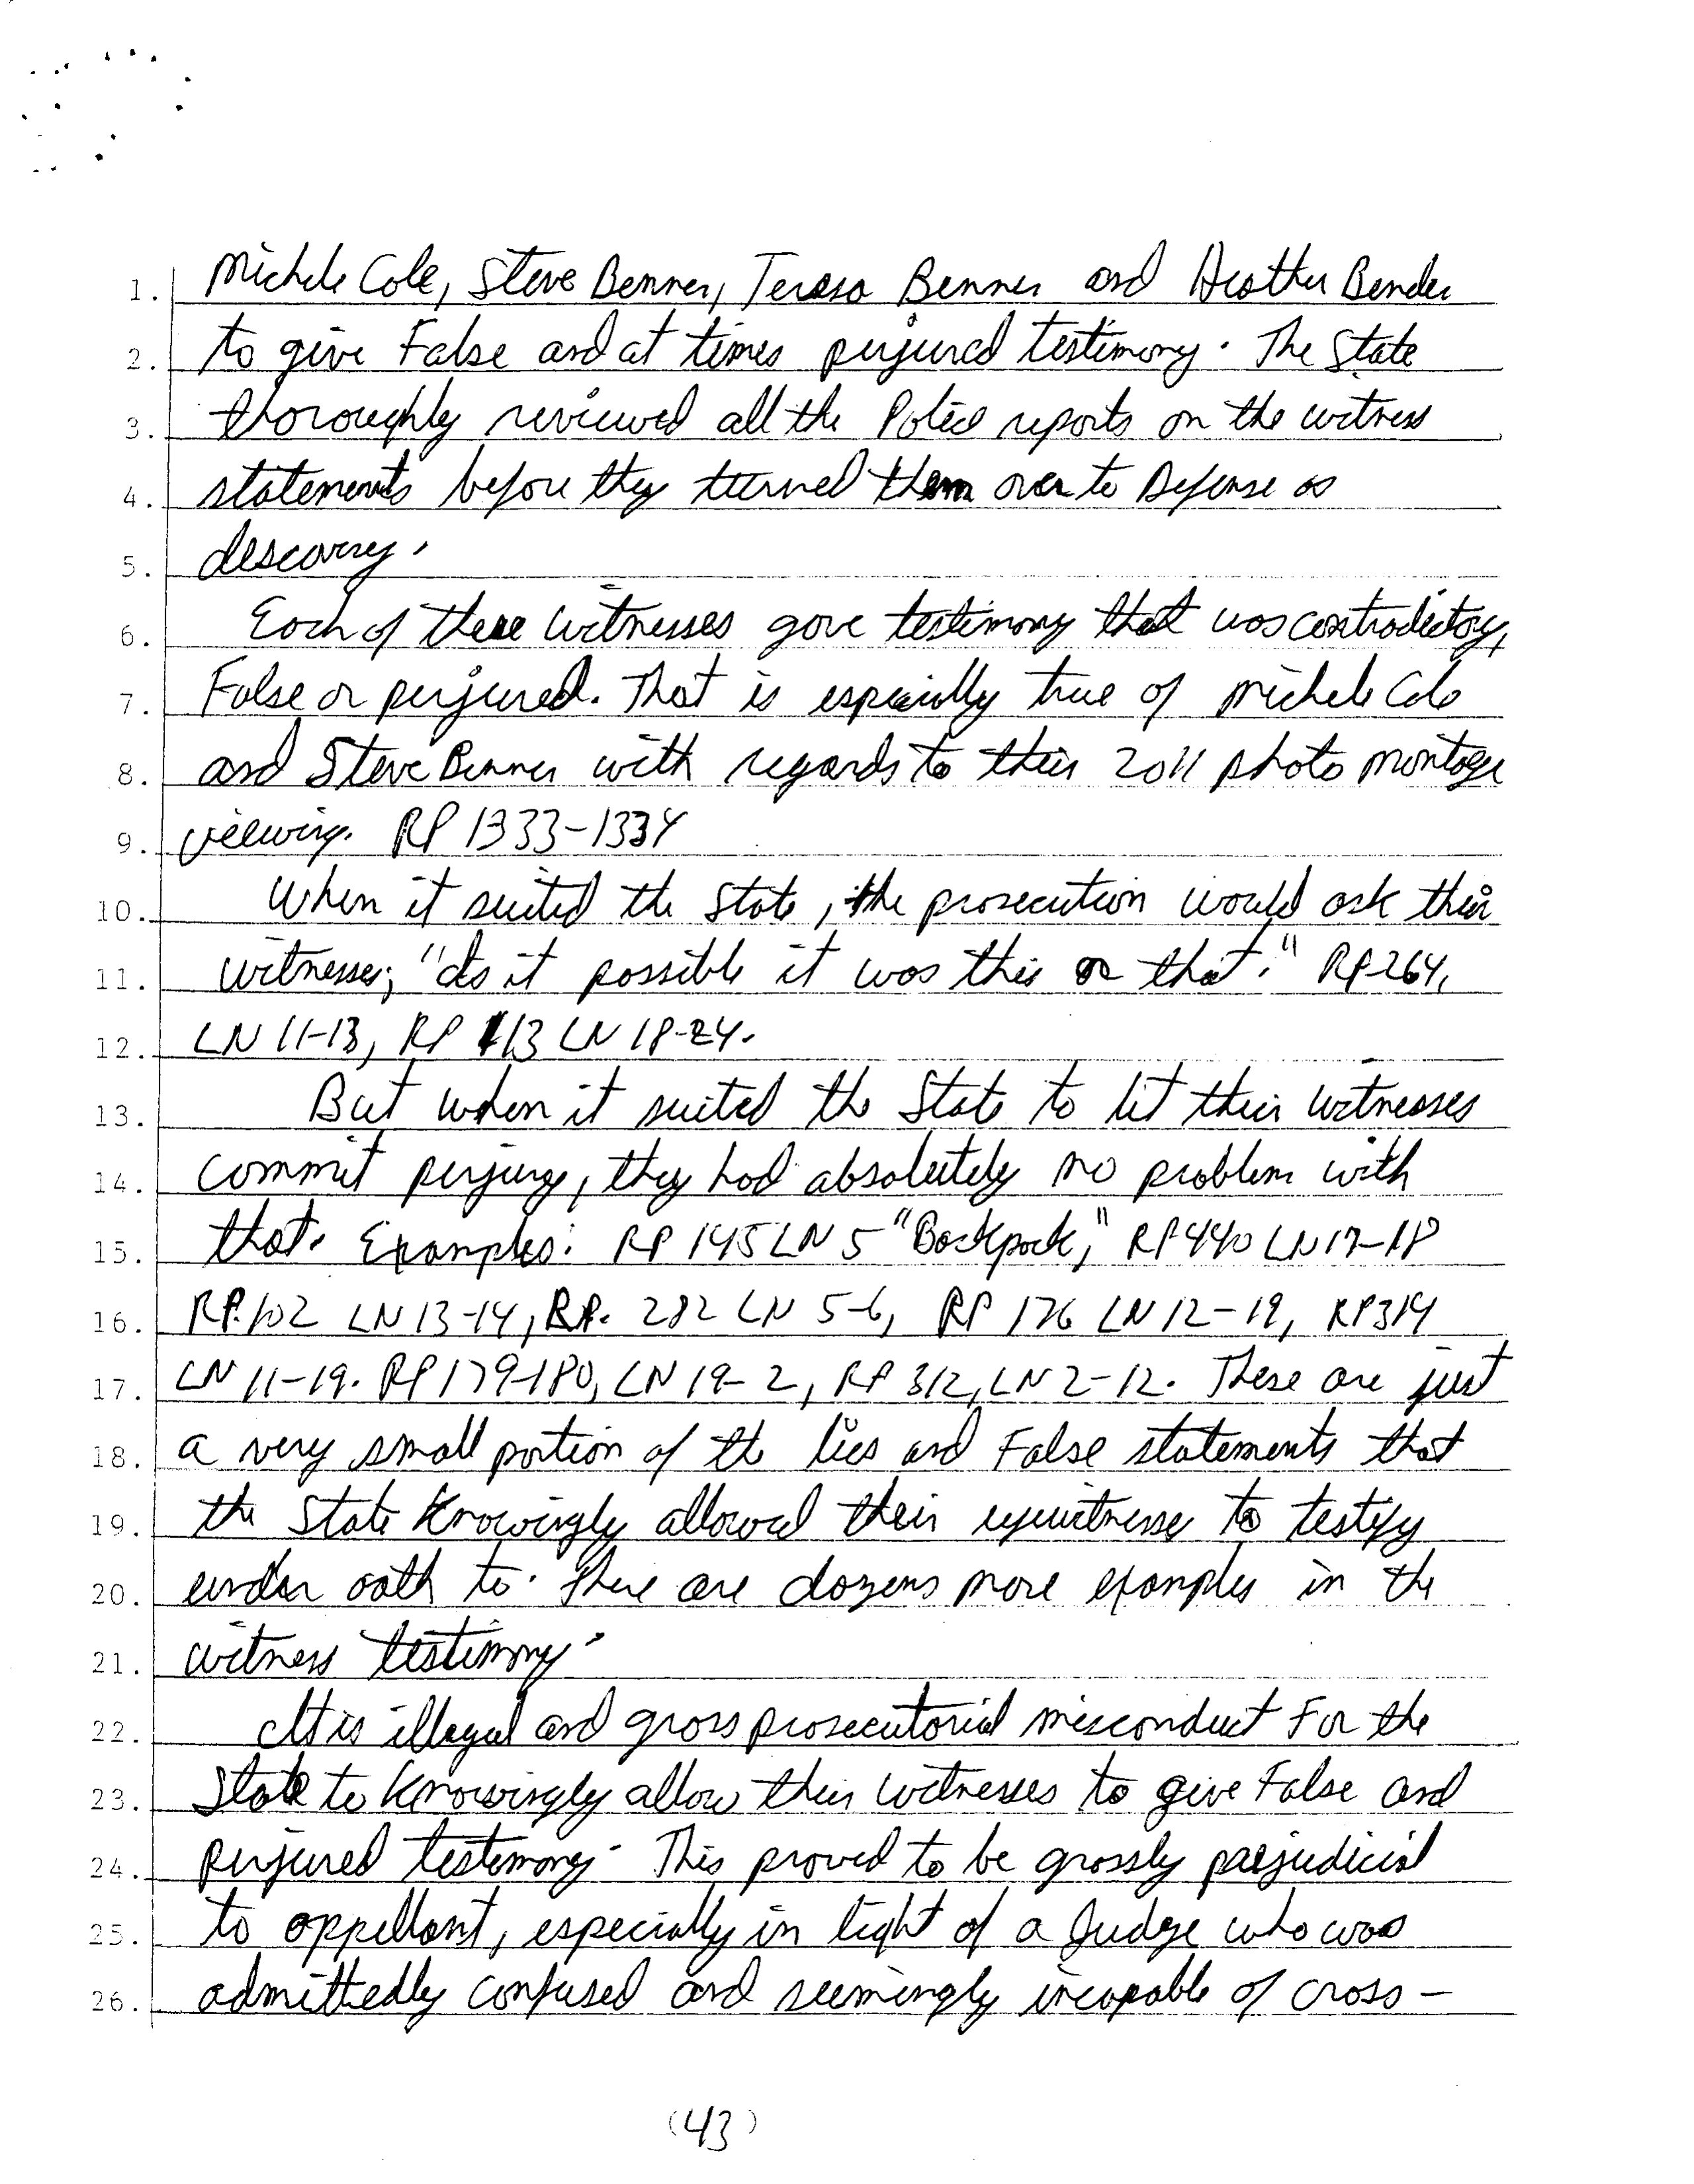 1. Michele Cole, Steve Benner, Teresa Benner and Heather Bender
2. to give False and at times perjured testimony. The State
3. thoroughly reviewed all the Police reports on the witness
4. statements before they turned them over to Defense as
5. discovery.
6. Each of these witnesses gave testimony that was contradictory,
7. False or perjured. That is especially true of Michele Cole
8. and Steve Benner with regards to their 2011 photo montage
9. viewing. RP 1333-1334
10. When it suited the State, the prosecution would ask their
11. witnesses; "is it possible it was this or that." RP 264,
12. LN 11-13, RP 113 LN 18-24.
13. But when it suited the State to let their witnesses
14. commit perjury, they had absolutely no problem with
15. that. Examples: RP 145 LN 5 "Backpack," RP 440 LN 17-18
16. RP. 102 LN 13-14, RP. 282 LN 5-6, RP 176 LN 12-19, RP 314
17. LN 11-19. RP 179-180, LN 19-2, RP 312, LN 2-12. These are just
18. a very small portion of the lies and False statements that
19. the State Knowingly allowed their eyewitnesses to testify
20. under oath to. There are dozens more examples in the
21. witness testimony.
22. It is illegal and gross prosecutorial misconduct For the
23. State to Knowingly allow their witnesses to give False and
24. perjured testimony. This proved to be grossly prejudicial
25. to appellant, especially in light of a Judge who was
26. admittedly confused and seemingly incapable of cross-
(43)